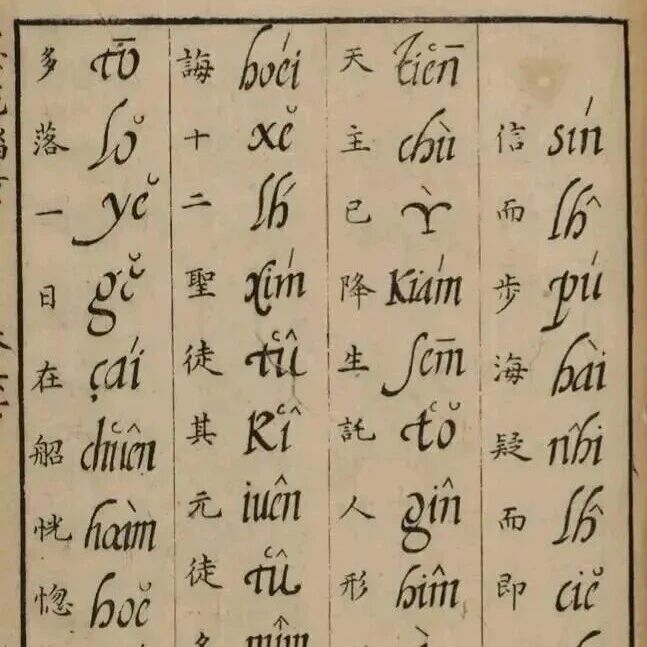 信 sín 而 lĥ 步 pú 海 hài 疑 nĥi 而 lĥ 即 ciĕ
天 tͨiēn 主 chù 已 ỳ 降 Kiám 生 sēm 託 tͨŏ 人 gîn 形 hîm
誨 hoéi 十 xĕ 二 lh́ 聖 xím 徒 tͨû 其 Kͨî 元 iuên 徒 tͨû 名 mîm
多 tō 落 lŏ 一 yĕ 日 gĕ 在 çaí 船 chͨuên 恍 hoàm 惚 hoĕ